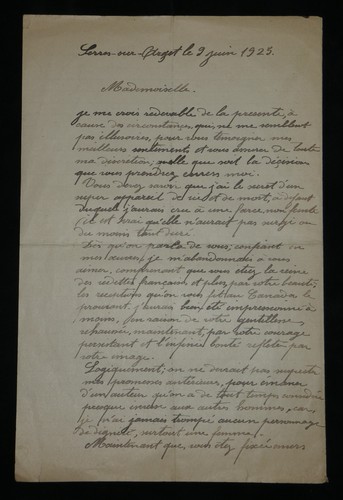 Serres-sur-Arget le 9 juin 1925.
Mademoiselle.
je me crois redevable de la presente, à
cause des circonstances qui, ne me semblent
pas illusoires, pour vous temoigner mes
meilleurs sentiments et vous assurer de toute
ma discrétion; quelle que soit la décision
que vous prendrez envers moi.
Vous devez savoir que j'ai le secret d'un
super appareil de vie et de mort, à défaut
duquel j'aurais cru à une farce
s'il est vrai qu'elle n'aurait pas surgie ou
du moins tant duré.
Dès qu'on parla de vous; confiant
mes , je m'abandonnais à vous
aimer, comprenant que vous étiez la reine
des vedettes françaises et plus par votre beauté;
les receptions qu'on vous fit au Canada le
prouvant, j'aurai bien été impressionné à
moins, en raison de votre gentillesse
rehaussée, maintenant, par votre courage
persistant et l'infinie bonté reflétée par
votre image.
Logiquement; on ne devrait pas
mes promesses antérieures, pour
d'un auteur qu'on a de tout temps considéré
presque envers aux autres hommes, car
je n'ai jamais trompé aucun personnage
de dignité, surtout une femme.
Maintenant que, vous etez fixée